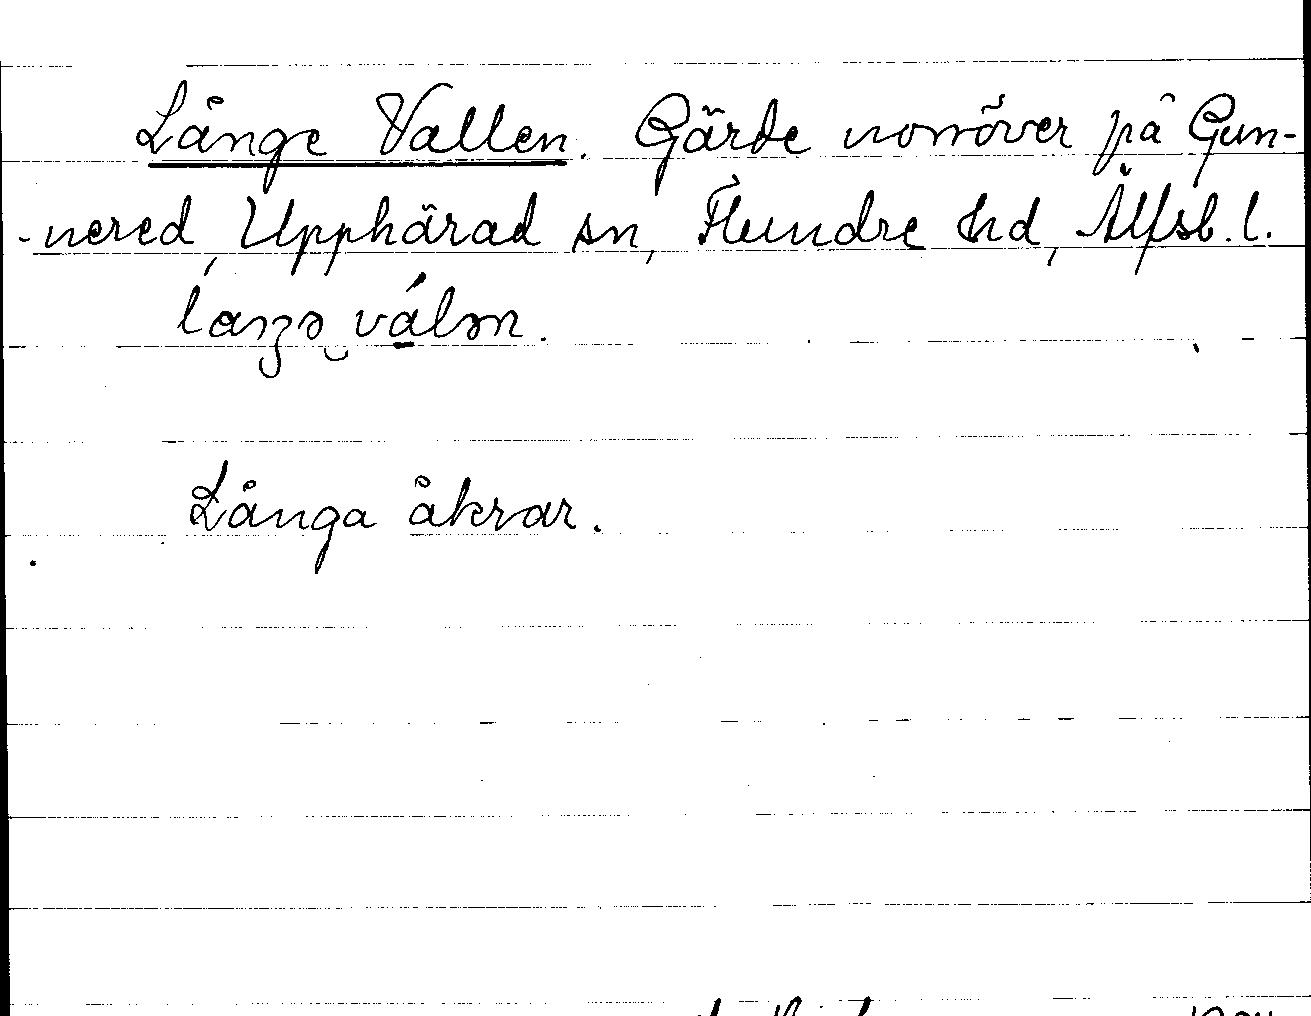 Långe Vallen. Gärde norröver på Gun-
-nered, Upphärad sn, Flundre hd, Älfsb. l.
Långa åkrar.